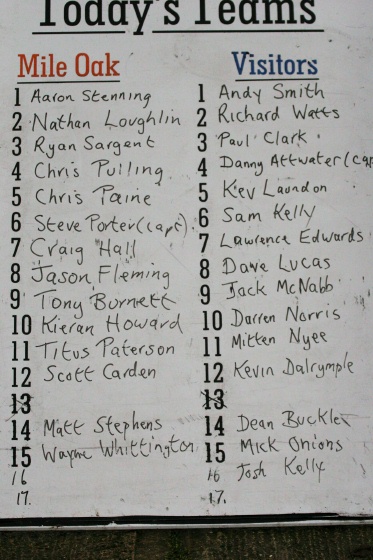 Today's Teams
Mile Oak
1 Aaron Stenning
2 Nathan Loughlin
3 Ryan Sargent
4 Chris Pulling
5 Chris Paine
6 Steve Porter (capt).
7 Craig Hall
8 Jason Fleming
9 Tony Burnett
10 Kieran Howard
11 Titus Paterson
12 Scott Carden
13
14 Matt Stephens
15 Wayne Whittington
16
17.
Visitors
1 Andy Smith
2 Richard Watts
3 Paul Clark.
4 Danny Attwater (cap
5 Kev Laundon
6 Sam Kelly
7 Lawrence Edwards
8 Dave Lucas
9 Jack McNabb
10 Darren Norris
11 Mitten Nyee
12 Kevin Dalrymple
13
14 Dean Buckler
15 Mick Onions
16 Josh Kelly
17.